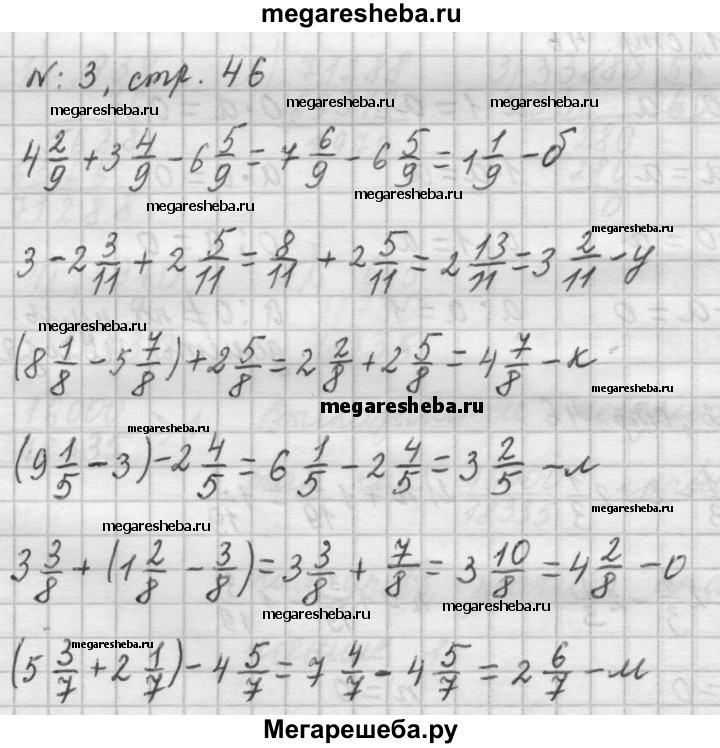 megaresheba.ru
N: 3, стр. 46
megaresheba.ru megaresheba.ru megaresheba.ru
4 2/9 + 3 4/9 - 6 5/9 = 7 6/9 - 6 5/9 = 1 1/9 - б
megaresheba.ru megaresheba.ru
megaresheba.ru
3 - 2 3/11 + 2 5/11 = 8/11 + 2 5/11 = 2 13/11 = 3 2/11 - у
megaresheba.ru
(8 1/8 - 5 7/8) + 2 5/8 = 2 2/8 + 2 5/8 = 4 7/8 - к
megaresheba.ru megaresheba.ru
megaresheba.ru
(9 1/5 - 3) - 2 4/5 = 6 1/5 - 2 4/5 = 3 2/5 - л
megaresheba.ru megaresheba.ru
3 3/8 + (1 2/8 - 3/8) = 3 3/8 + 7/8 = 3 10/8 = 4 2/8 - о
megaresheba.ru megaresheba.ru
megaresheba.ru megaresheba.ru
(5 3/7 + 2 1/7) - 4 5/7 = 7 4/7 - 4 5/7 = 2 6/7 - м
Мегарешеба.ру